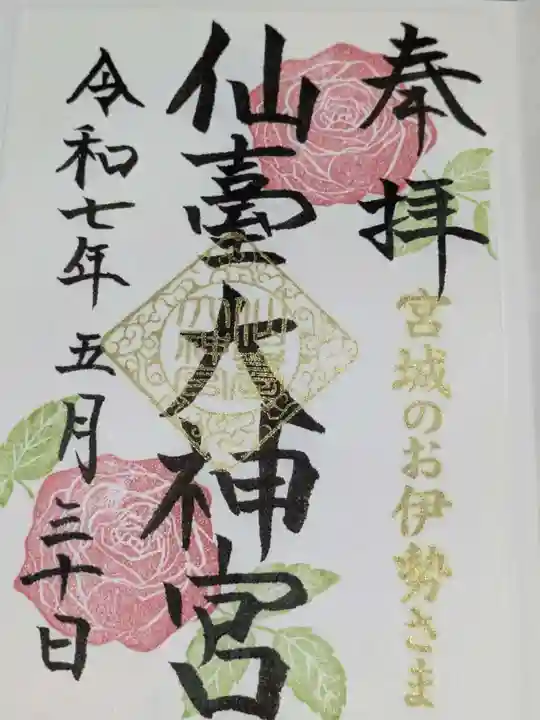 奉拝
宮城のお伊勢さま
仙臺大神宮
令和七年五月三十日